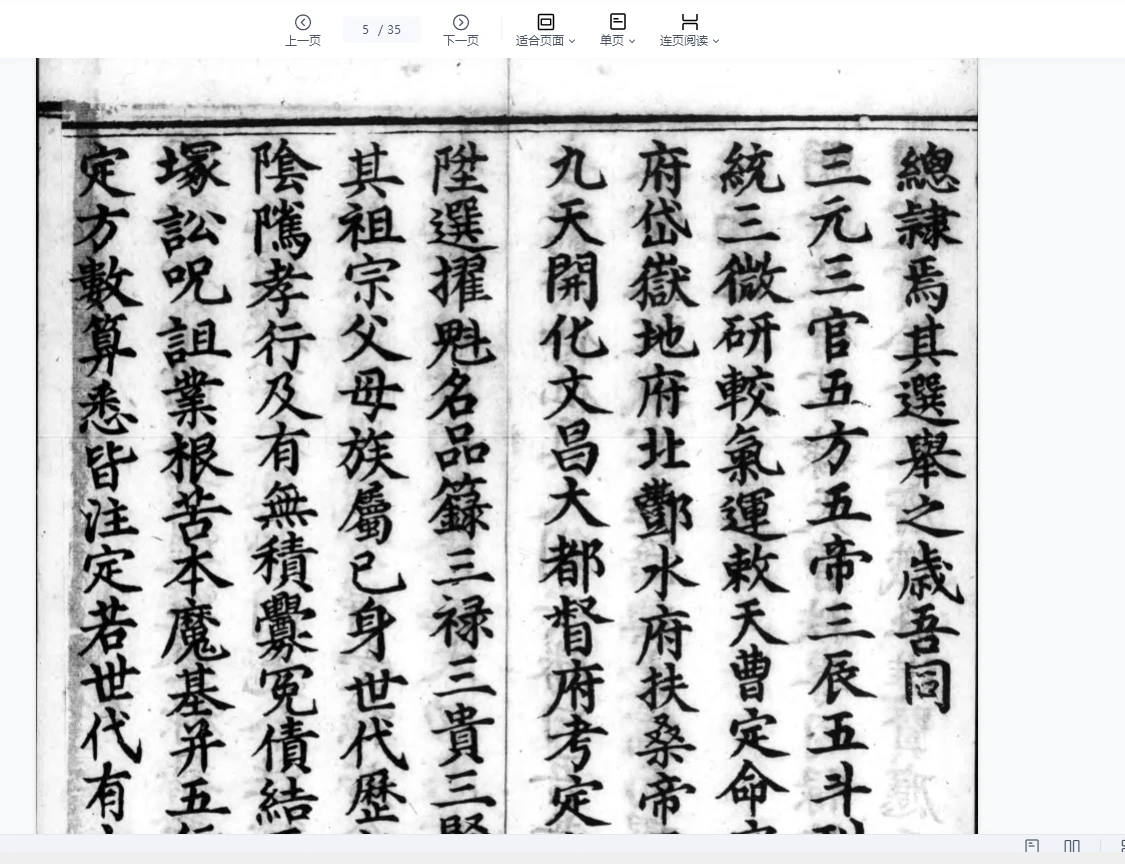 上一页
5 / 35
下一页
适合页面
单页
连页阅读
總隷焉其選舉之歳吾同
三元三官五方五帝三辰五斗
統三微研較氣運敕天曹定命
府岱嶽地府北酆水府扶桑帝
九天開化文昌大都督府考定
陞選擢魁名品籙三禄三貴三
其祖宗父母族屬己身世代歷
陰隲孝行及有無積釁冤債結
塚訟呪詛業根苦本魔基并五
定方數算悉皆注定若世代有